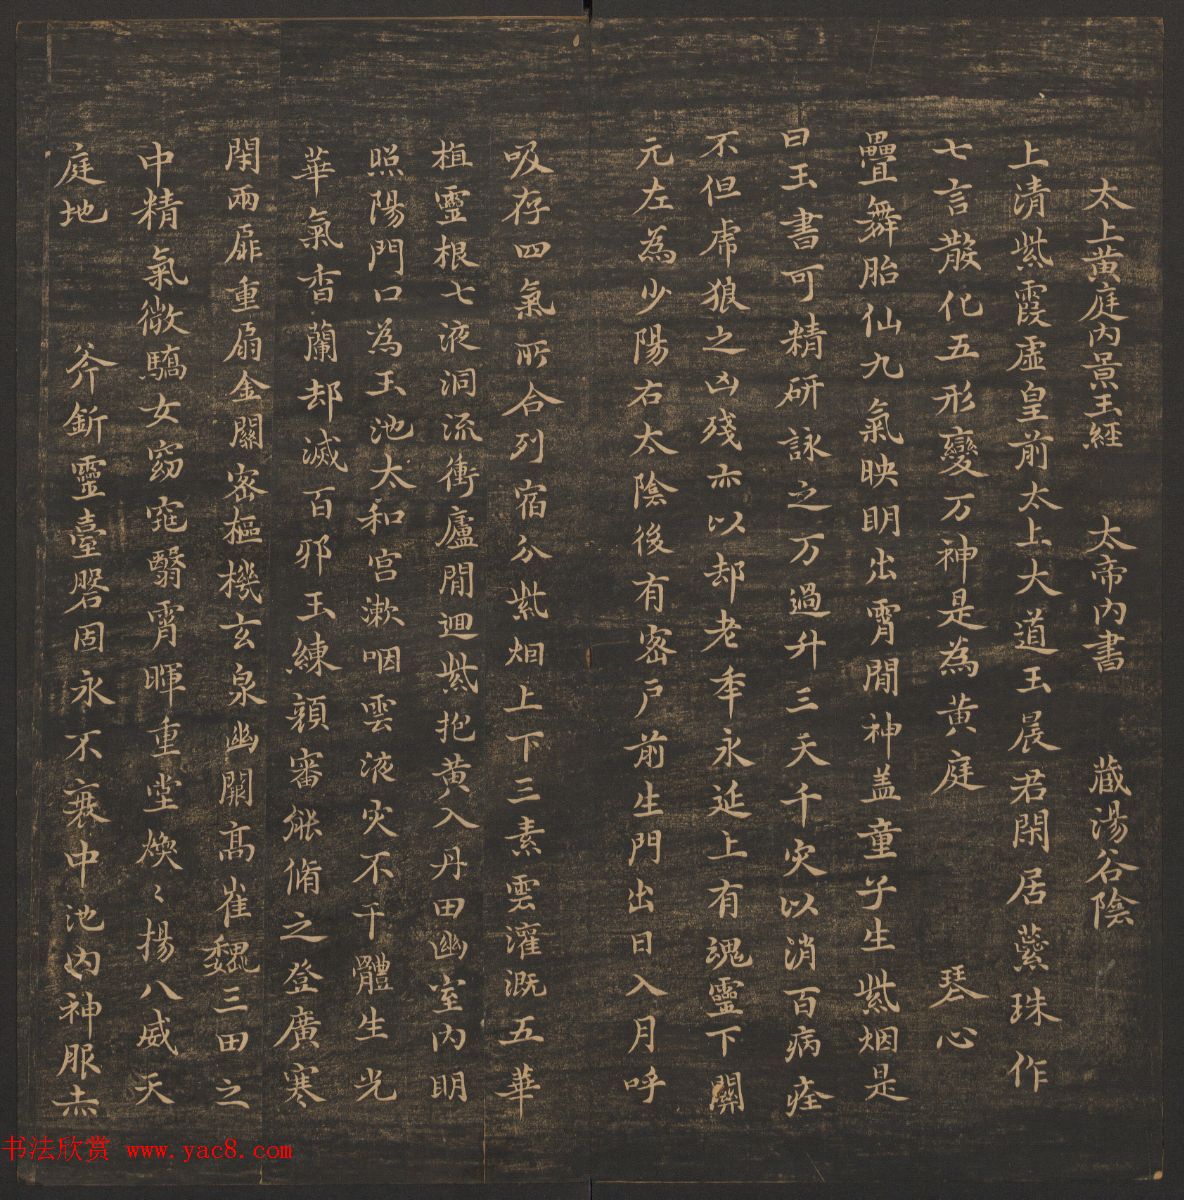 太上黄庭内景玉經 太帝内書 藏湯谷陰
上清紫霞虛皇前太上大道玉晨君閑居蘂珠作
七言散化五形變万神是為黄庭 琴心
疊舞胎仙九氣映明出霄間神盖童子生紫烟是
曰玉書可精研詠之万過升三天千灾以消百病痊
不但虎狼之凶殘亦以却老年永延上有魂靈下關
元左為少陽右太陰後有密户前生門出日入月呼
吸存四氣所合列宿分紫烟上下三素雲灌溉五華
植靈根七液洞流衝廬間迴紫抱黄入丹田幽室内明
照陽門口為玉池太和宫漱咽雲液灾不干體生光
華氣香蘭却滅百邪玉練顏審能脩之登廣寒
閑兩扉重扇金關密樞機玄泉幽關髙崔巍三田之
中精氣微驕女窈窕翳霄暉重堂煥〻揚八威天
庭地 斧釿靈臺磐固永不衰中池内神服赤
书法欣赏 www.yac8.com